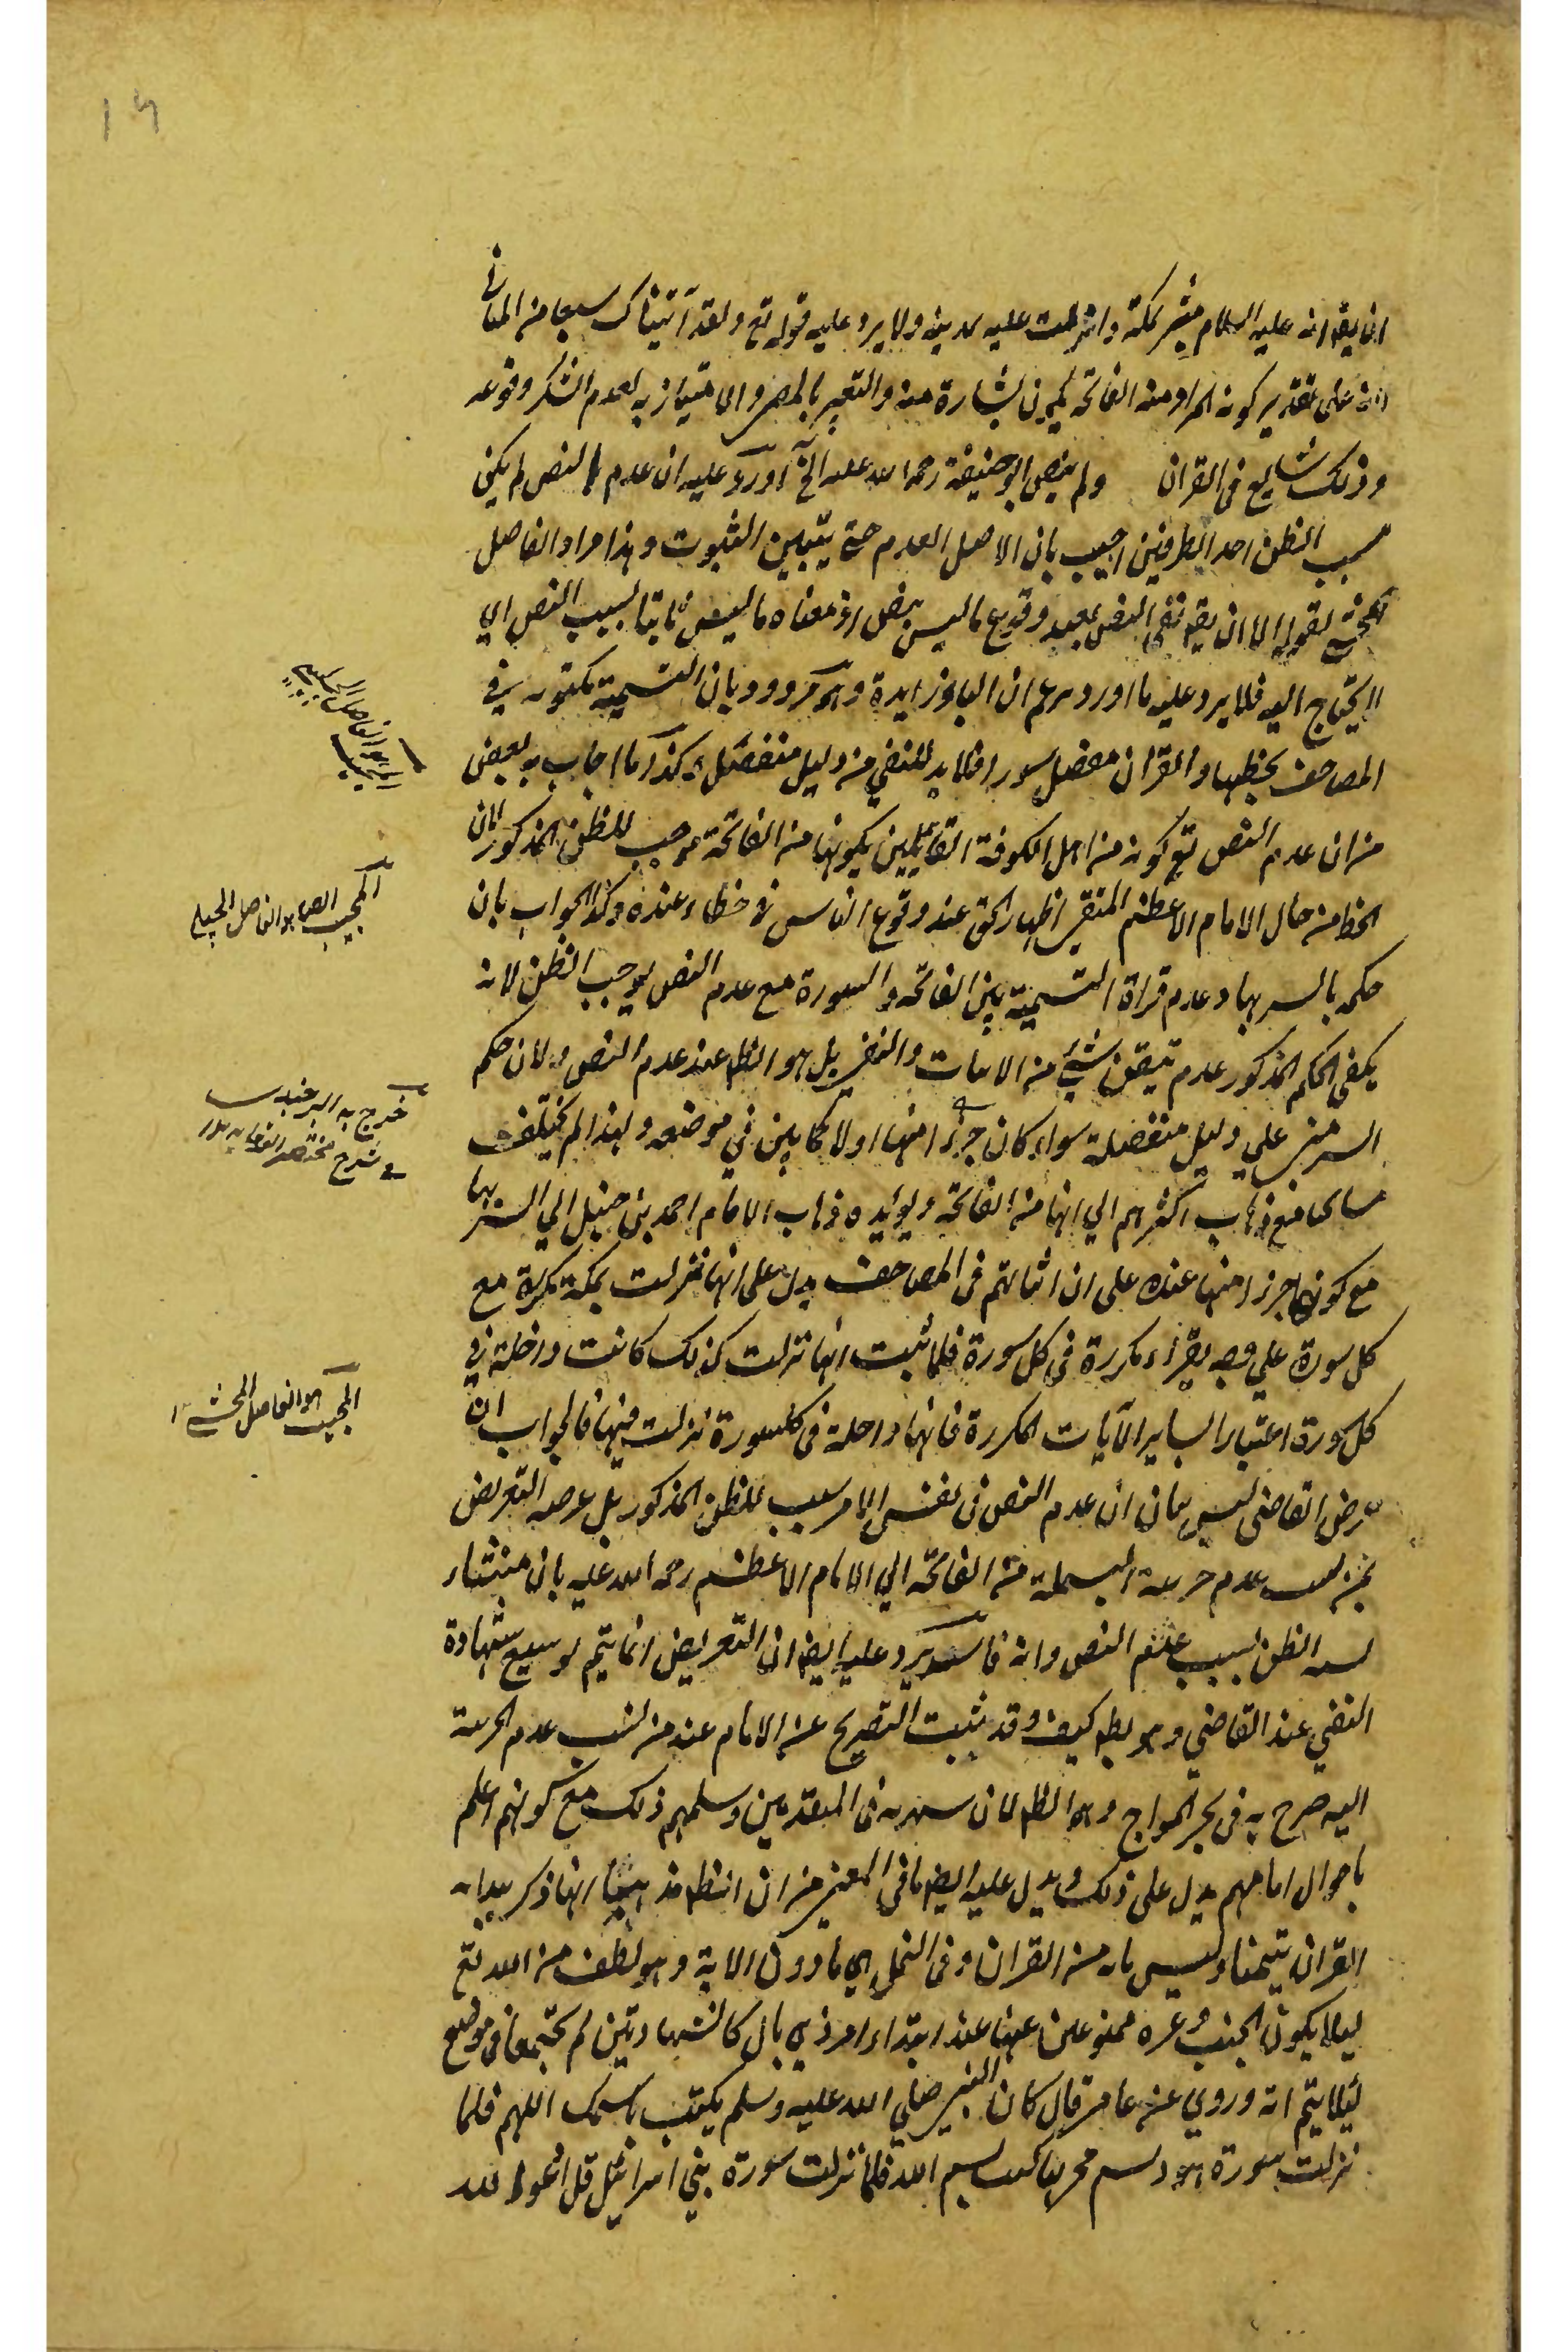 ١٦
انه عليه السلام بشر بمكة وانزلت عليه بمدينة ولا يرد عليه قوله تع ولقد آتيناك سبعا من المثاني
على تقدير كون المراد منه الفاتحة بشارة منه والتعبير بالمضي والامتنان به لعدم الشك وقوعه
وذلك شايع فى القران ولم ينص ابو حنيفة رحمه الله عليه الخ اورد عليه ان عدم النص لم يكن
سبب الظن احد الطرفين اجيب بان الاصل العدم حتى يتبين الثبوت وهذا مراد الفاضل
المحشي بقوله الا ان يقه نفي النص بعيد وقوع ما ليس بنص اذ معناه ما ليس ثابتا بسبب النص اي
لا يحتاج اليه فلا يرد عليه ما اورد ان الباء زايدة وهو مردود بان التسمية مكتوبة في
المصاحف بخطها والقران مفصل سورا فلا بد للنفي من دليل منفصل كذا ما اجاب به بعض
من ان عدم النص مع كونه من اهل الكوفة القائلين بكونها من الفاتحة موجب للظن المذكور لان
الظ من حال الامام الاعظم المتقي اظهار الحق عند وقوع الناس في خطاء عنده وكذا الجواب بان
حكمه بالسر بها وعدم قراة التسمية بين الفاتحة والسورة مع عدم النص يوجب الظن لانه
يكفى الحكم المذكور عدم تيقن شيئ من الاثبات والنفي بل هو الظ عند عدم النص ولان حكم
السر مبني علي دليل منفصلة سواء كان جزءا منها اولا كما بين في موضعه ولهذا لم يختلف
مع ذهاب اكثرهم الي انها من الفاتحة ويؤيده ذهاب الامام احمد بن حنبل الي السر بها
مع كونها جزء منها عنده على ان اثباتهم فى المصاحف يدل على انها نزلت بمكة مكررة مع
كل سورة علي وجه يقرء مكررة فى كل سورة فلما ثبت انها نزلت كذلك كانت داخلة في
كل سورة اعتبارا بساير الآيات المكررة فانها داخلة فى كل سورة نزلت فيها فالجواب ان
غرض القاضى ليس بيان ان عدم النص فى نفس الامر سبب للظن المذكور بل غرضه التعريض
بمن نسب عدم جزءية البسملة من الفاتحة الي الامام الاعظم رحمه الله عليه بان منشاء
نسبه الظن بسبب عدم النص وانه فاسد يرد عليه ايض ان التعريض انما يتم لو سمع شهادة
النفي عند القاضي وهو بط كيف وقد ثبت التصريح عن الامام عند من نسب عدم الجزءية
اليه صرح به فى بحر المواج وهو الظ لان المتقدمين وسلمهم ذلك مع كونهم اعلم
باحوال امامهم يدل على ذلك ويدل عليه ايض ما في من ان انها ذكر
القران تيمنا وليس بايه من القران وفى النمل هي ما دون الاية وهو لطف من الله تع
ليلا يكون الجنب وغيره ممنوعين عنها عند ابتداء امر ذي بال كالشهادتين لم يجتمعا فى موضع
لئلا يتم انه وروي عن عامر قال كان النبي صلي الله عليه وسلم يكتب باسمك اللهم فلما
نزلت سورة هود بسم الله مجريها كتب بسم الله فلما نزلت سورة بني اسرائيل قل ادعوا الله
المجيب هو الفاضل
المجيب ايضا هو الفاضل الجلپي
صرح به البرجندي
فى شرح مختصر الوقاية
المجيب هو الفاضل المحشي ١٢